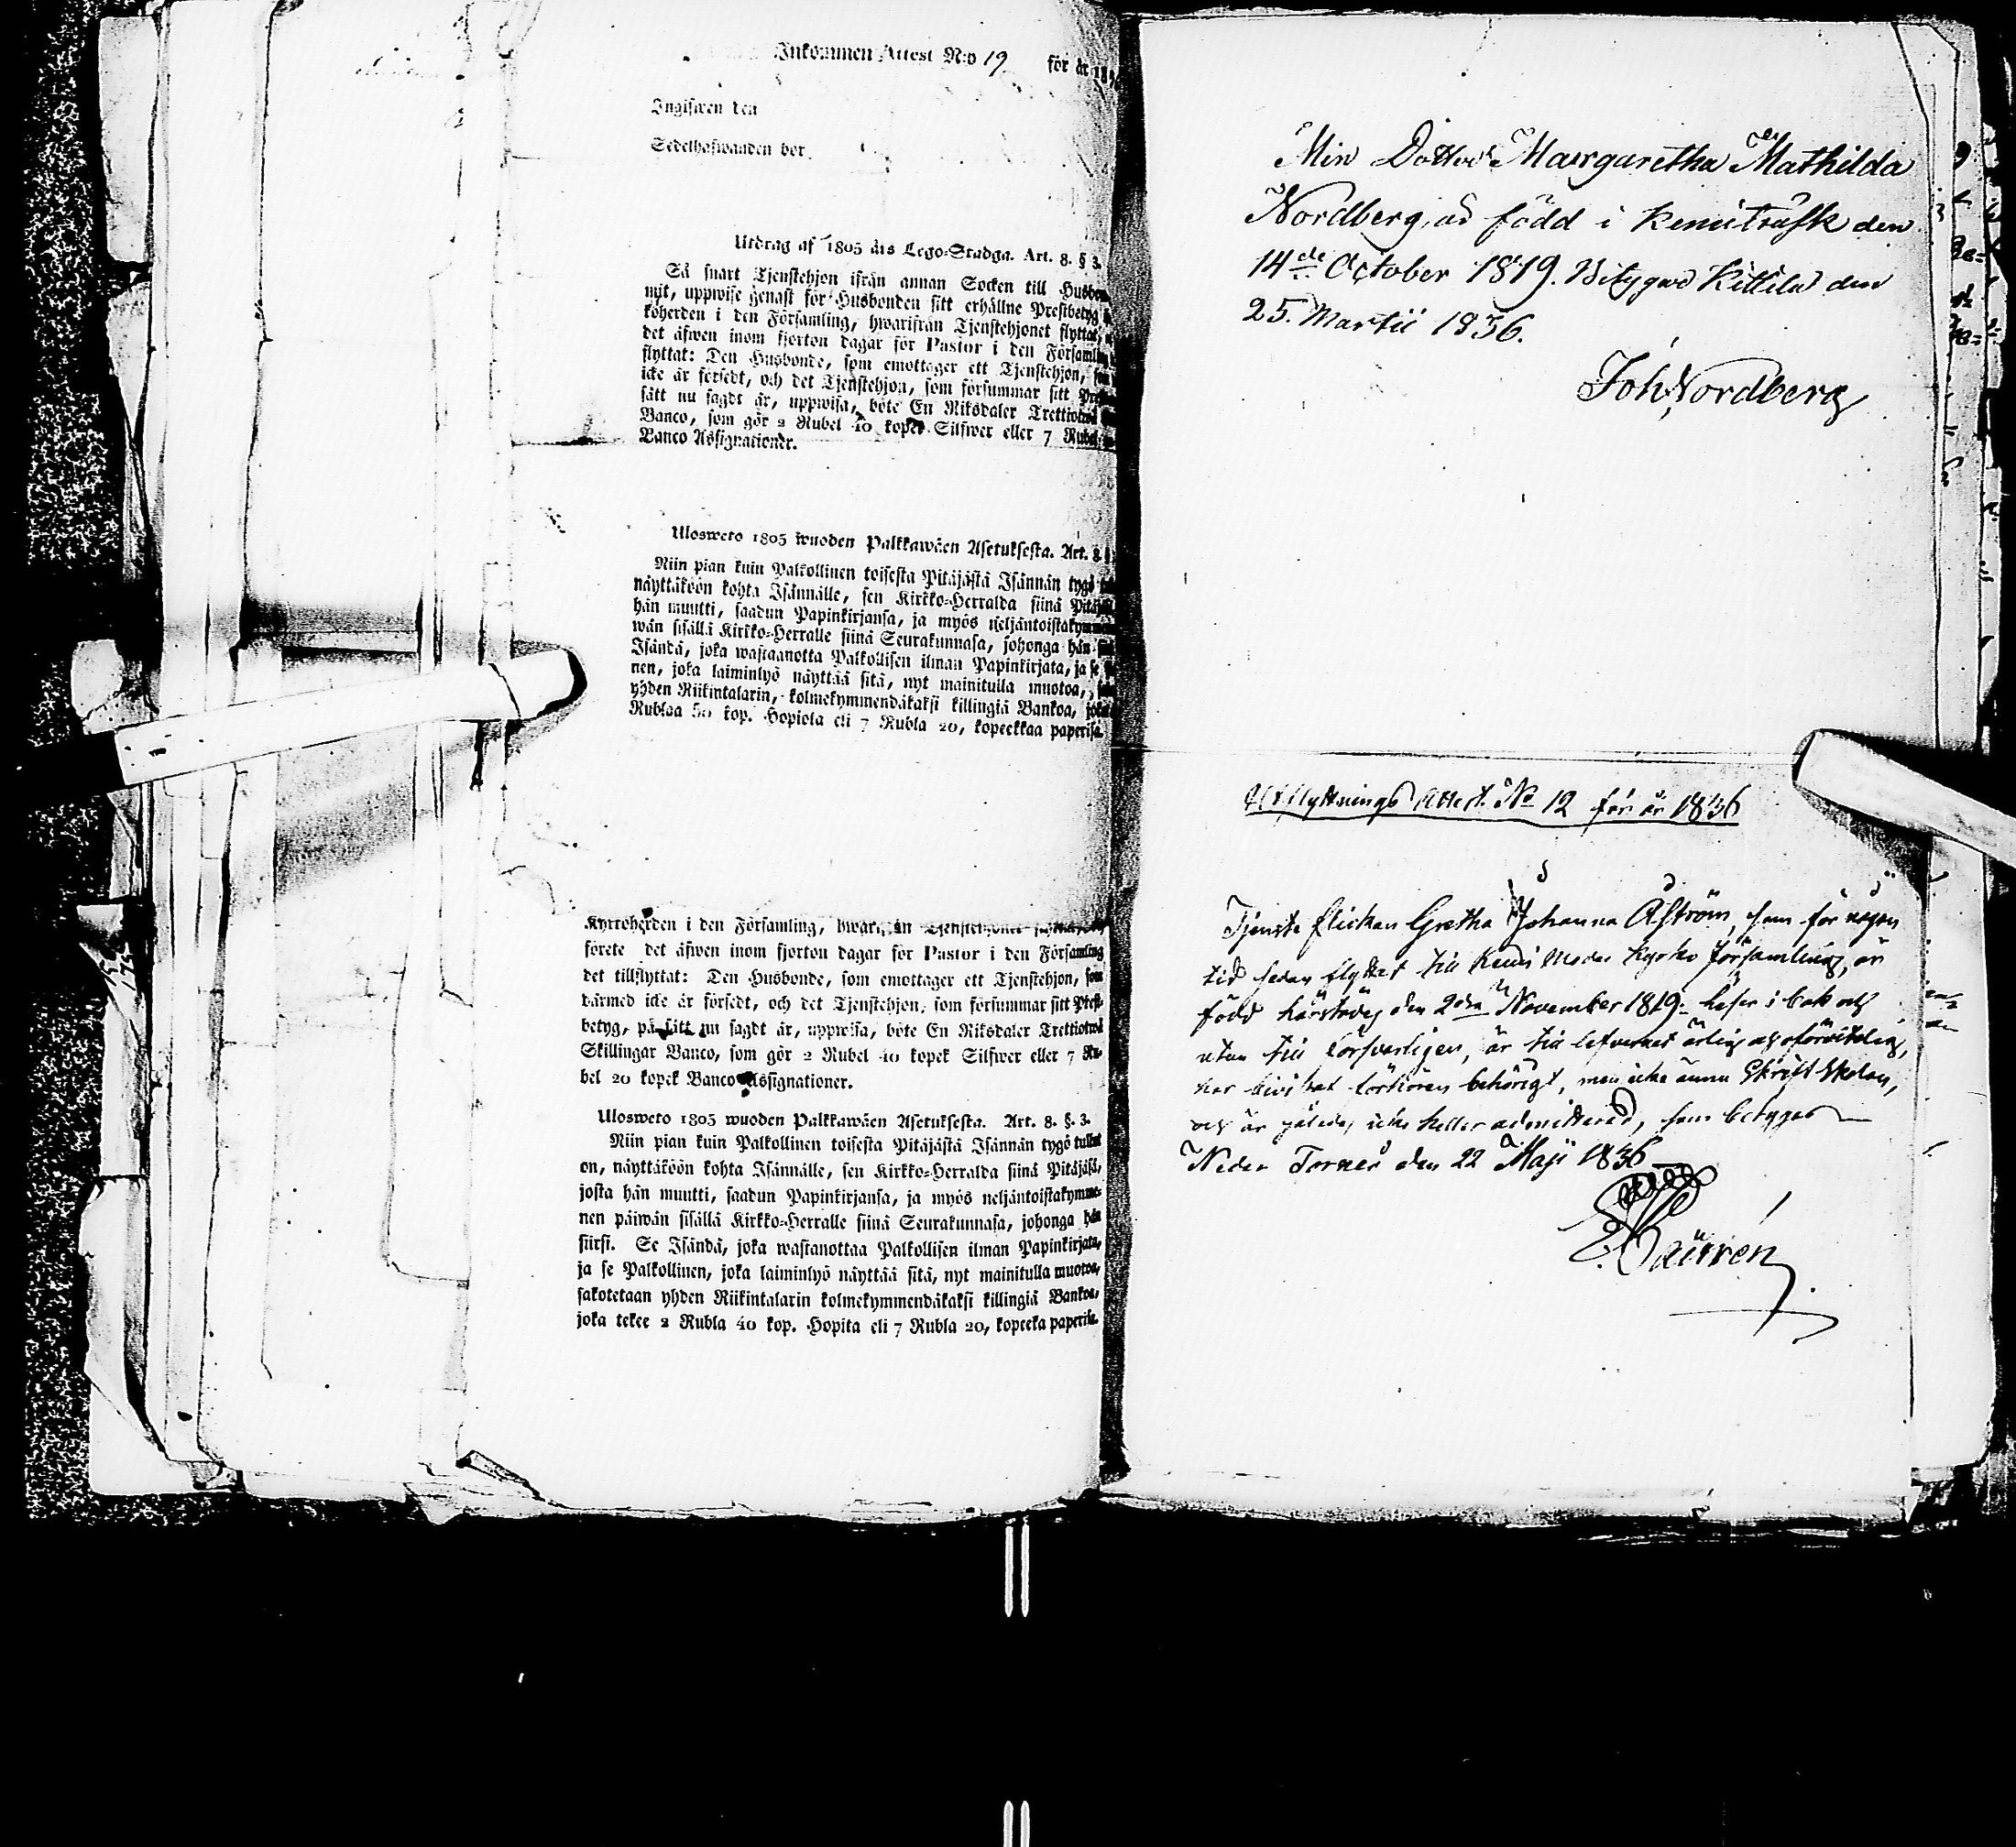 Inkommen Attest N:o 19 för år 18
Ingifwen den
Sedelhafwanden bor
Utdrag af 1805 års Lego-Stadga. Art. 8. § 3.
Så snart Tjenstehjon ifrån annan Socken till Husbon
mit, uppwise genast för Husbonden sitt erhållne Prestbetyg
koherden i den Församling, hwarifrån Tjenstehjonet flyttat,
det äfwen inom fjorton dagar för Pastor i den Församling
flyttat: Den Husbonde, som emottager ett Tjenstehjon,
icke är försedt, och det Tjenstehjon, som försummar sitt
sätt nu sagdt är, uppwisa, böte En Riksdaler Trettiotwå
Banco, som gör 2 Rubel 40 kopek Silfwer eller 7 Rubel
Banco Assignationer.
Ulosweto 1805 wuoden Palkkawäen Asetuksesta. Art. 8.
Niin pian kuin Palkollinen toisesta Pitäjästä Isännän tygö
näyttäköön kohta Isännälle, sen Kirkko-Herralda siinä
hän muutti, saadun Papinkirjansa, ja myös neljäntoistakymme
wän sisällä Kirkko-Herralle siinä Seurakunnasa, johonga hän
Isändä, joka wastaanotta Palkollisen ilman Papinkirjata, ja se
nen, joka laiminlyö näyttää sitä, nyt mainitulla muotoa,
yhden Riikintalarin, kolmekymmendäkaksi killingiä Bankoa,
Rublaa kop. Hopiota eli 7 Rubla 20, kopeekkaa paperisa.
Kyrkoherden i den Församling,
förete det äfwen inom fjorton dagar för Pastor i den Församling
det tillflyttat: Den Husbonde, som emottager ett Tjenstehjon, som
därmed icke är försedt, och det Tjenstehjon, som försummar sitt Prest-
betyg, på sätt nu sagdt är, uppwisa, böte En Riksdaler Trettiotwå
Skillingar Banco, som gör 2 Rubel 40 kopek Silfwer eller 7 Ru-
bel 20 kopek Banco Assignationer.
Ulosweto 1805 wuoden Palkkawäen Asetuksesta. Art. 8. §. 3.
Niin pian kuin Palkollinen toisesta Pitäjästä Isännän tygö tullut
on, näyttäköön kohta Isännälle, sen Kirkko-Herralda siinä Pitäjäsä,
josta hän muutti, saadun Papinkirjansa, ja myös neljäntoistakymme-
nen päiwän sisällä Kirkko-Herralle siinä Seurakunnasa, johonga hän
siirsi. Se Isändä, joka wastanottaa Palkollisen ilman Papinkirjata,
ja se Palkollinen, joka laiminlyö näyttää sitä, nyt mainitulla muotoa,
sakotetaan yhden Riikintalarin kolmekymmendäkaksi killingiä Bankoa,
joka tekee 2 Rubla 40 kop. Hopita eli 7 Rubla 20, kopeeka paperisa.
Min Dotter Margaretha Mathilda
Nordberg, är född i Kemiträsk den
14de October 1819. Betygar Kittilä den
25. Martii 1836.
Joh. Nordberg
Utflyttnings Attest. No 12 för år 1836
Tjenste flickan Gretha Johanna Aström, som för någon
tid sedan flyttat till Kemi Moder Kyrko församling, är
född härstädes den 2dra November 1819. läser i bok och
utan till försvarligen, är till lefvernet ärlig och oförvitelig,
har bivistat förhören behörigt, men icke ännu Skriftskolan,
och är således icke heller admitterad, som betygas
Neder Torneå den 22 Maji 1836